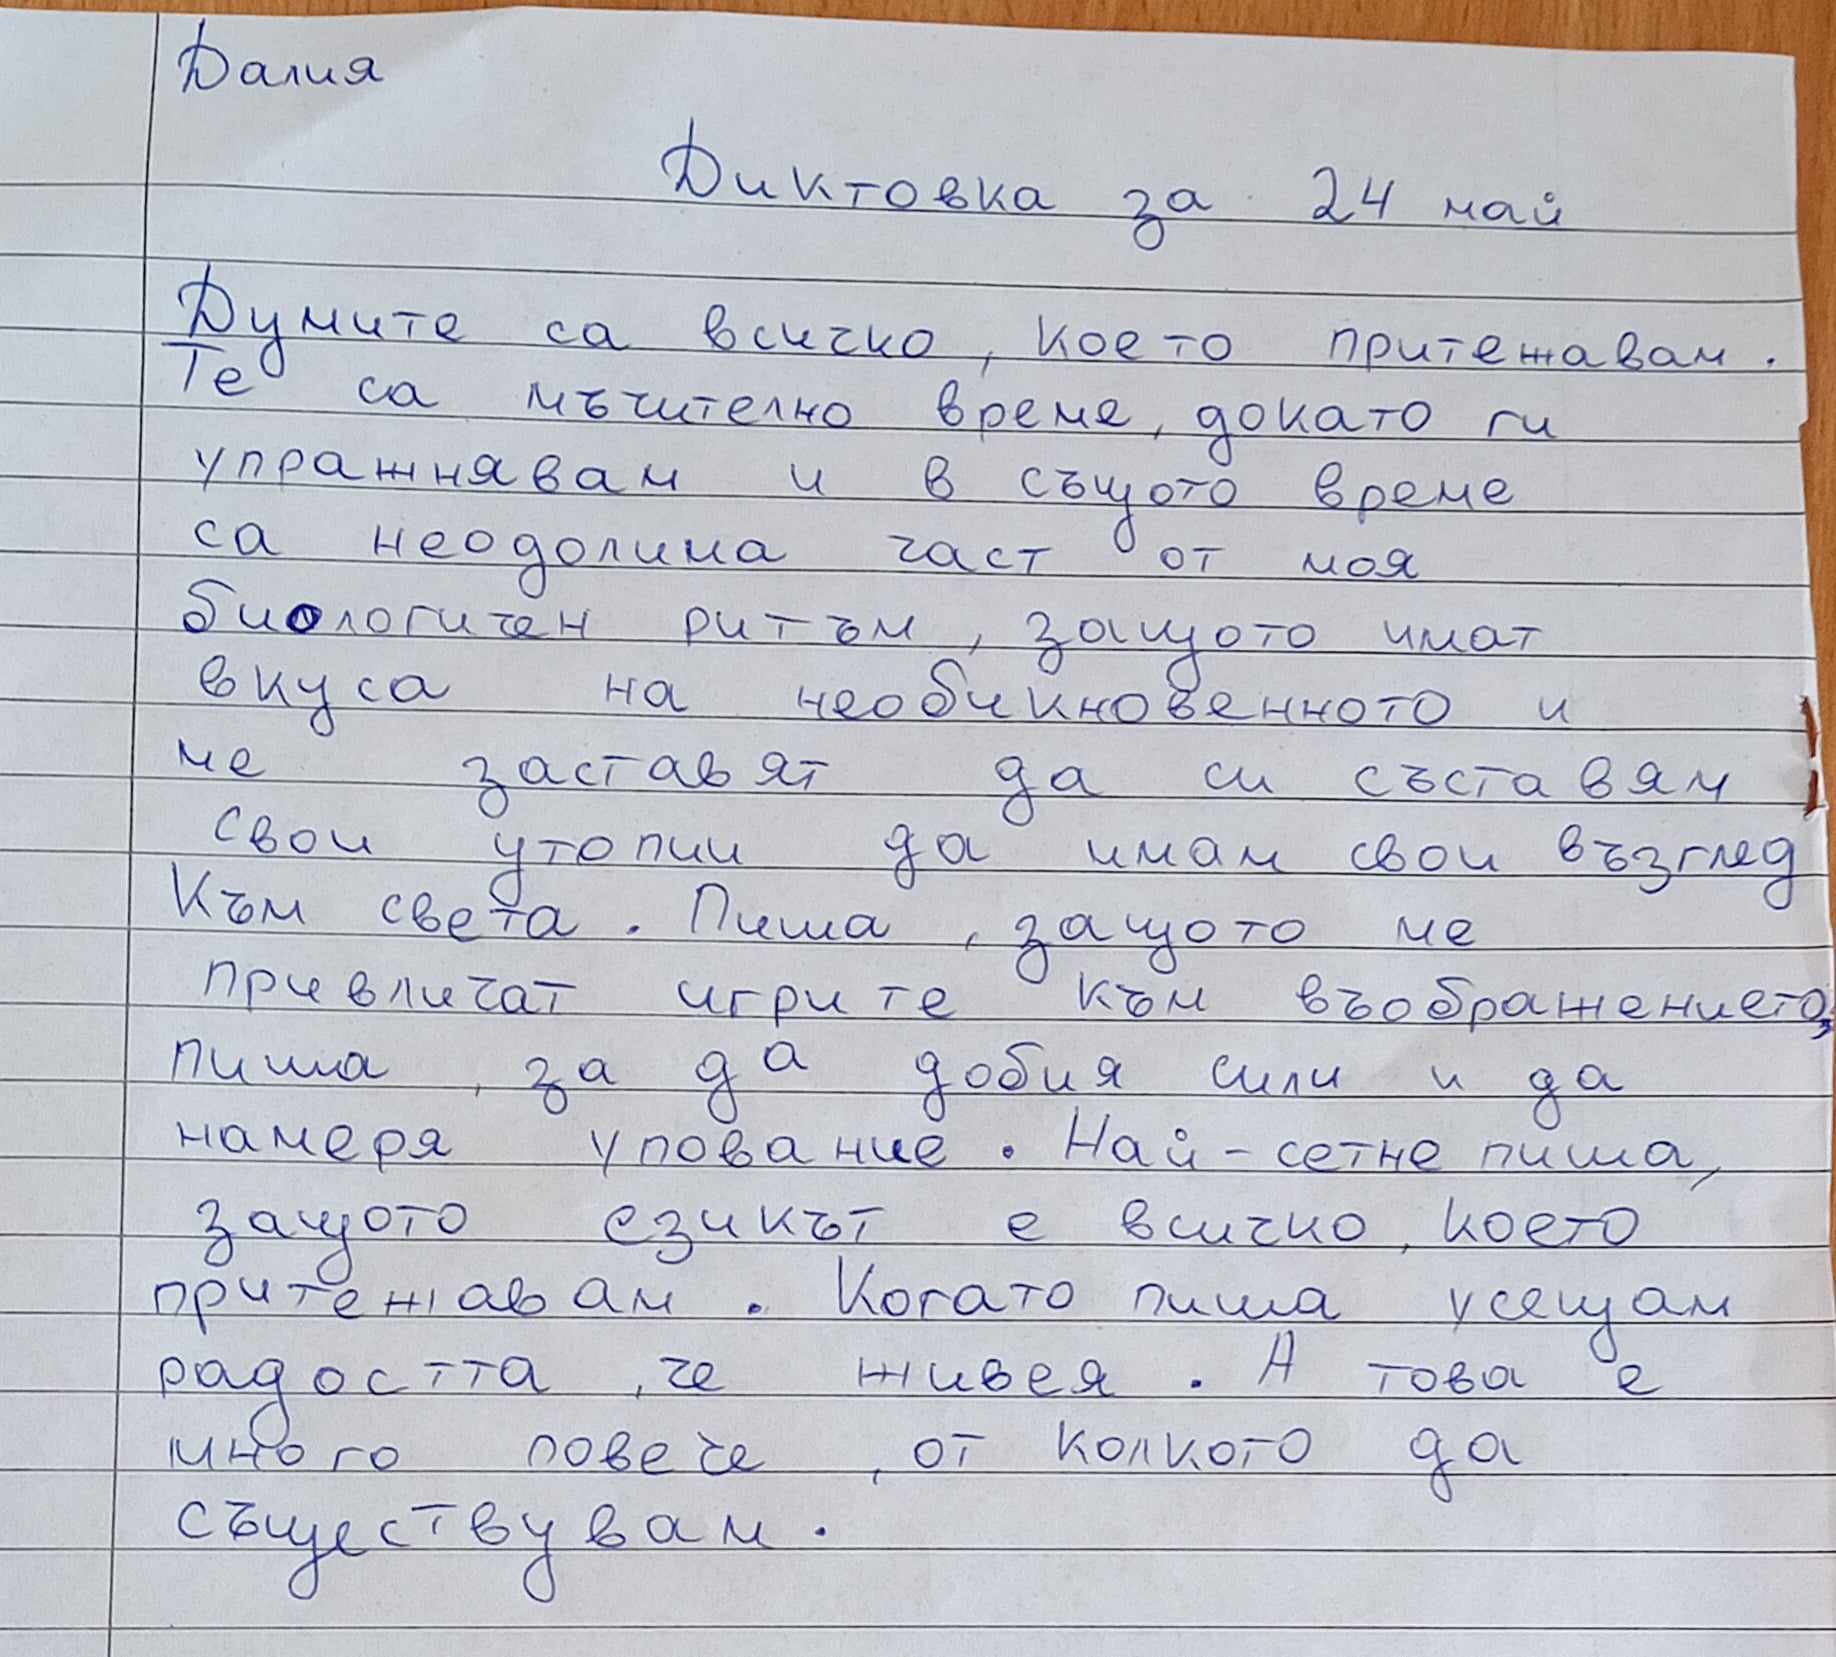 Далия
Диктовка за 24 май
Думите са всичко, което притежавам.
Те са мъчително време, докато ги
упражнявам и в същото време
са неодолима част от моя
биологичен ритъм, защото имат
вкуса на необикновенното и
ме заставят да си съставям
свои утопии да имам свои възглед
Към света. Пиша, защото ме
привличат игрите към въображението,
пиша, за да добия сили и да
намеря упование. Най-сетне пиша,
защото езикът е всичко, което
притежавам. Когато пиша усещам
радостта, че живея. А това е
много повече, от колкото да
съществувам.